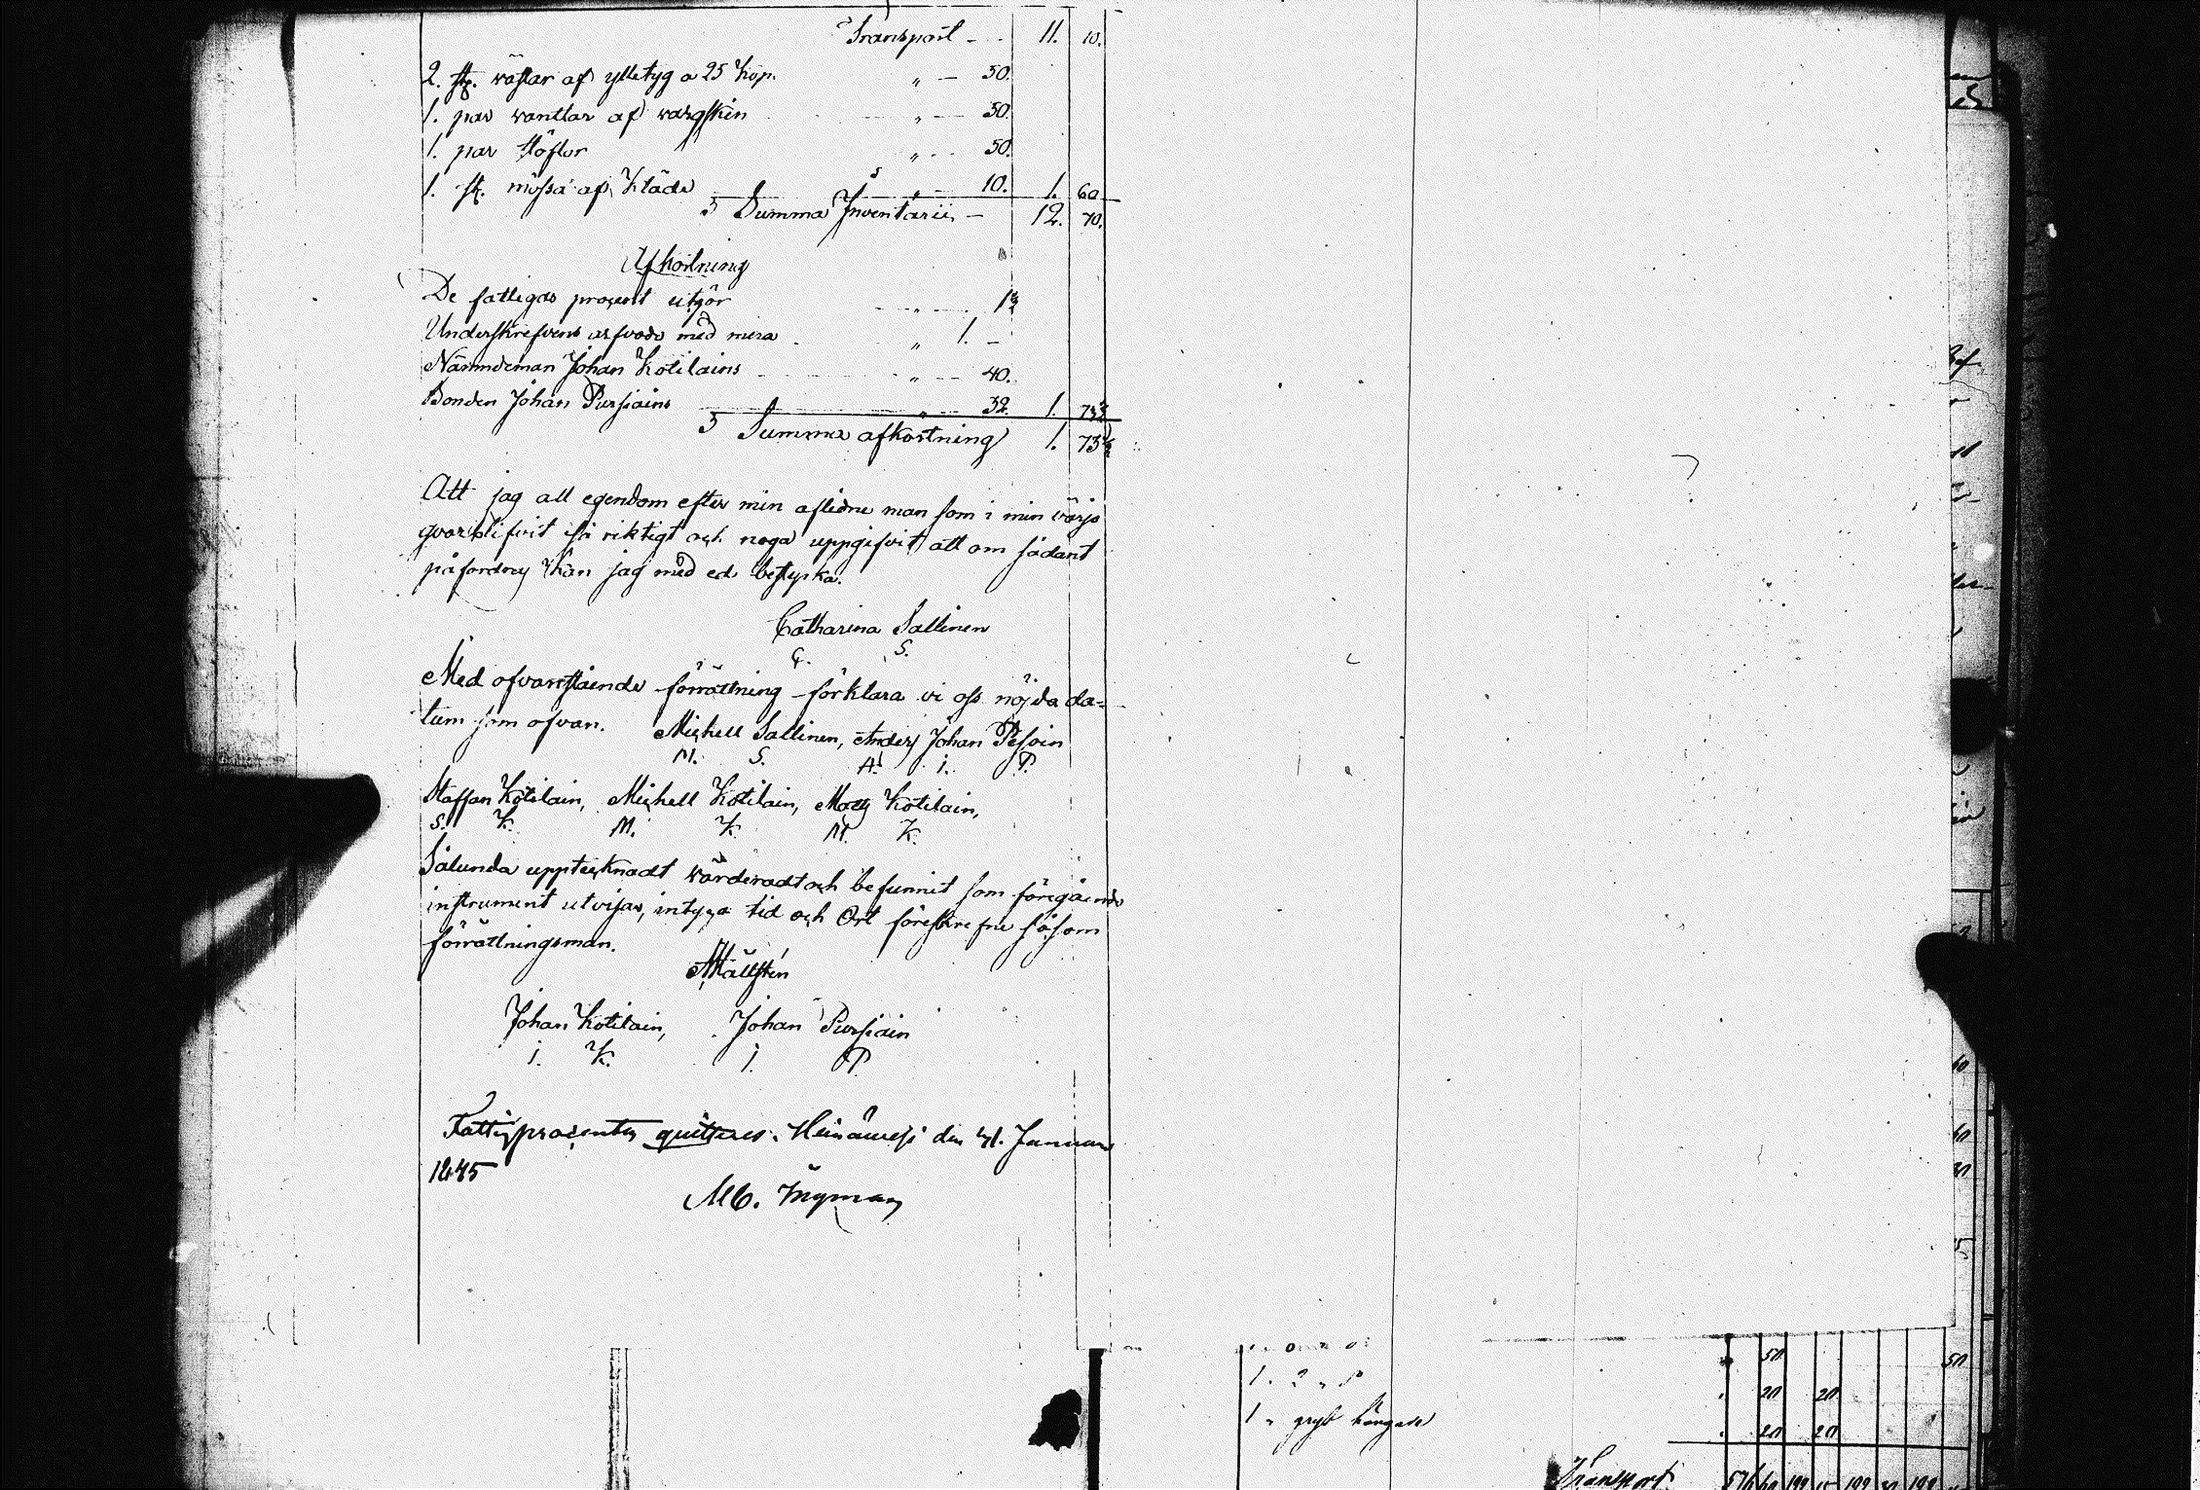 Transport - - 11. 10.
2. st. wästar af ylletyg a 25 kop. " - 50.
1. par wanttar af wargskin " - 50.
1. par stöflor " - 50.
1. st. mössa af kläde " - 10. 1. 60
S Summa Inventarii - 12. 70.
Afkortning
De fattigas procent utgör
Underskrefvens arfvode med mera " 1. -
Nämndeman Johan Kotilains " - 40.
Bonden Johan Pursiains " 32 1.
S Summa afkortning 1.
Att jag all egendom efter min aflidne man som i min värjo
qvarblifvit så riktigt och noga uppgifvit att om sådant
påfordras kan jag med ed bestyrka.
Catharina Sallinen
C. S.
Med ofvanstående förrättning förklara vi oss nöjda da=
tum som ofvan. Michell Sallinen, Anders Johan
M. S. A. J. P.
Staffan Kotilain, Michell Kotilain, Matts Kotilain,
S. K. M. K. M. K.
Sålunda upptecknadt wärderadt och befunnit som föregående
instrument utvisar, intyga tid och Ort föreskrefne såsom
förrättningsmän.
Johan Kotilain, Johan Pursiain
J. K. J. P.
Fattigprocenten quitteras. Heinäwesi den Januari
1845
Ingman
50 50
1 "
20 20
1 " hängare
20 20
Transport